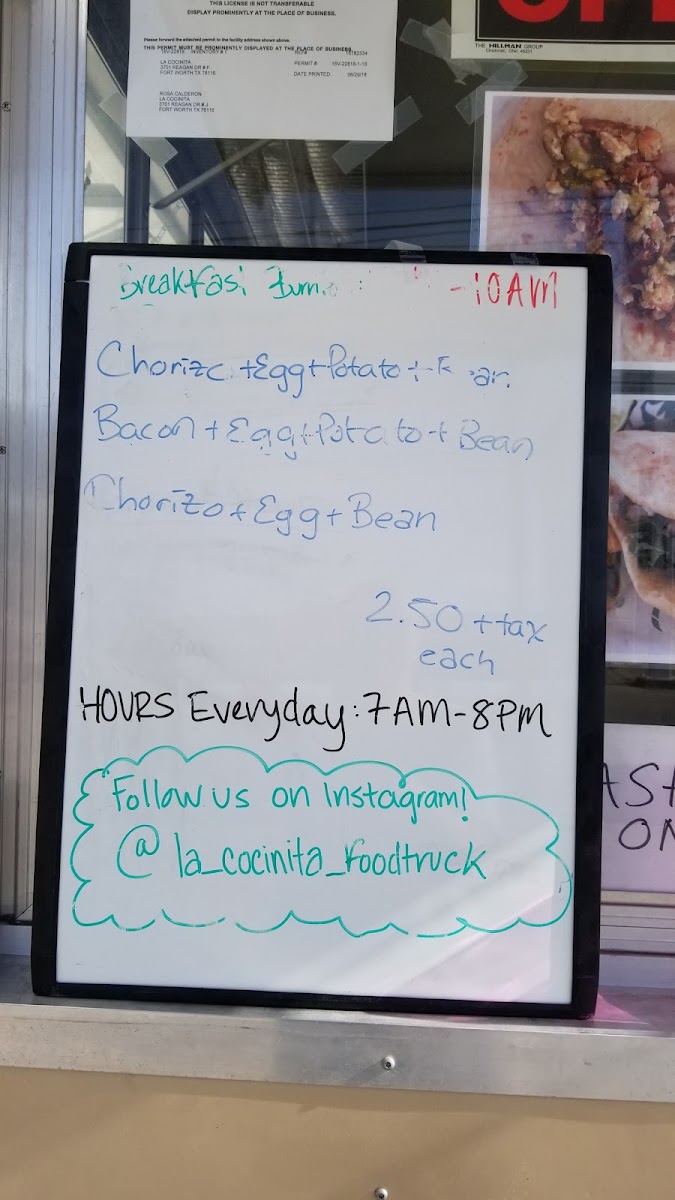 THIS LICENSE IS NOT TRANSFERABLE
DISPLAY PROMINENTLY AT THE PLACE OF BUSINESS.
Please forward the attached permit to the facility address shown above.
THIS PERMIT MUST BE PROMINENTLY DISPLAYED AT THE PLACE OF BUSINESS
LA COCINITA
PERMIT #
3701 REAGAN DR # F
FORT WORTH TX 76116
DATE PRINTED
ROSA CALDERON
LA COCINITA
FORT WORTH TX 76116
THE HILLMAN GROUP
-10AM
+Egg+Potato+
Bacon+Egg+Potato+Bean
Chorizo+Egg+Bean
2.50+tax
each
HOURS Everyday: 7AM-8PM
Follow us on Instagram!
@la_cocinita_foodtruck